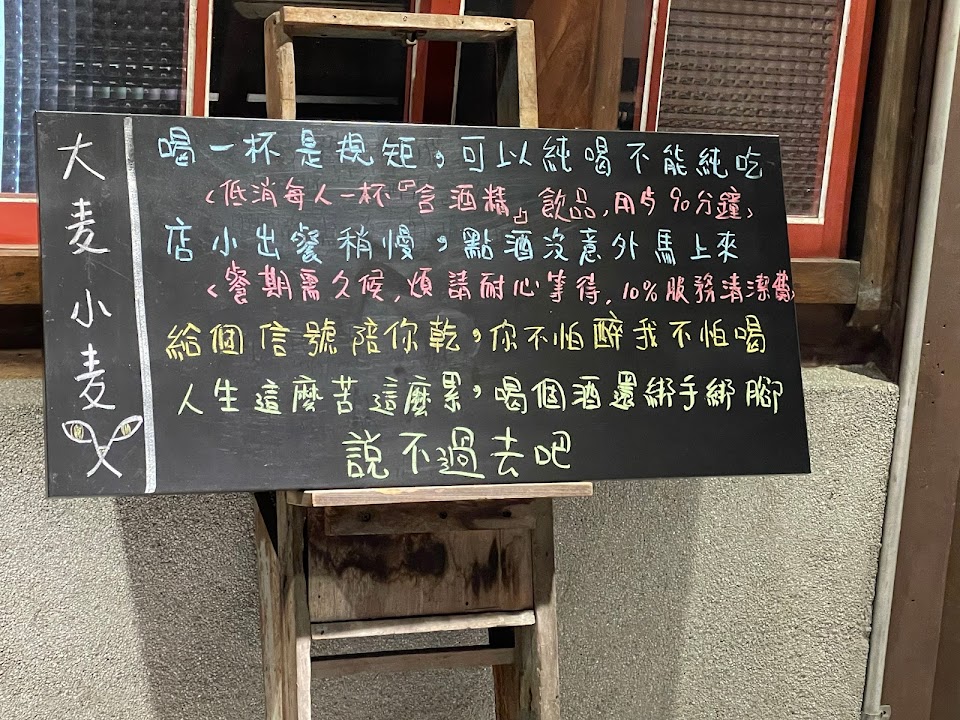 大麦小麦
喝一杯是規矩，可以純喝不能純吃
〈低消每人一杯『含酒精』飲品，用歺90分鐘〉
店小出餐稍慢，點酒沒意外馬上來
〈餐期需久候，煩請耐心等待，10%服務清潔費〉
給個信號陪你乾，你不怕醉我不怕喝
人生這麼苦這麼累，喝個酒還綁手綁腳
說不過去吧